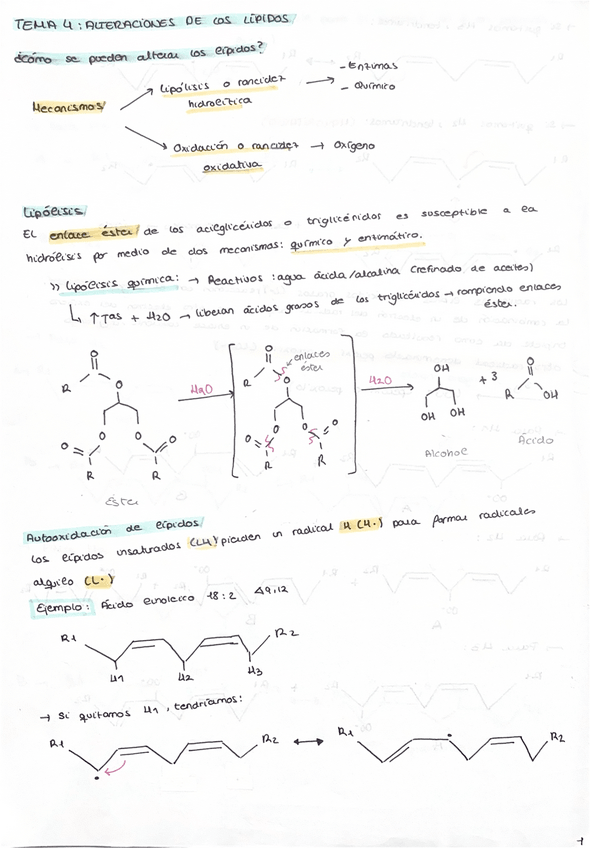 TEMA 4: ALTERACIONES DE LOS LÍPIDOS
¿Cómo se pueden alterar los lípidos?
Mecanismos
Lipólisis o rancidez
hidrolítica
- Enzimas
- Químico
Oxidación o rancidez → Oxígeno
oxidativa
Lipólisis
El enlace éster de los acilglicéridos o triglicéridos es susceptible a la
hidrólisis por medio de dos mecanismos: químico y enzimático.
» Lipólisis química: → Reactivos: agua ácida/alcalina (refinado de aceites)
↳ ↑Tas + H2O → liberan ácidos grasos de los triglicéridos → rompiendo enlaces
éster.
O
R
O
O
O
O
O
R
R
Éster
H2O
O
enlaces
éster
R
O
O
O
O
O
R
R
H2O
OH
OH
OH
Alcohol
+ 3
O
R
OH
Ácido
Autooxidación de lípidos
Los lípidos insaturados (LH) pierden un radical H (H·) para formar radicales
alquilo (L·)
Ejemplo: Ácido linoleico 18:2 Δ9,12
R1
R2
H1
H2
H3
→ Si quitamos H1, tendríamos:
R1
R2
R1
R2
1